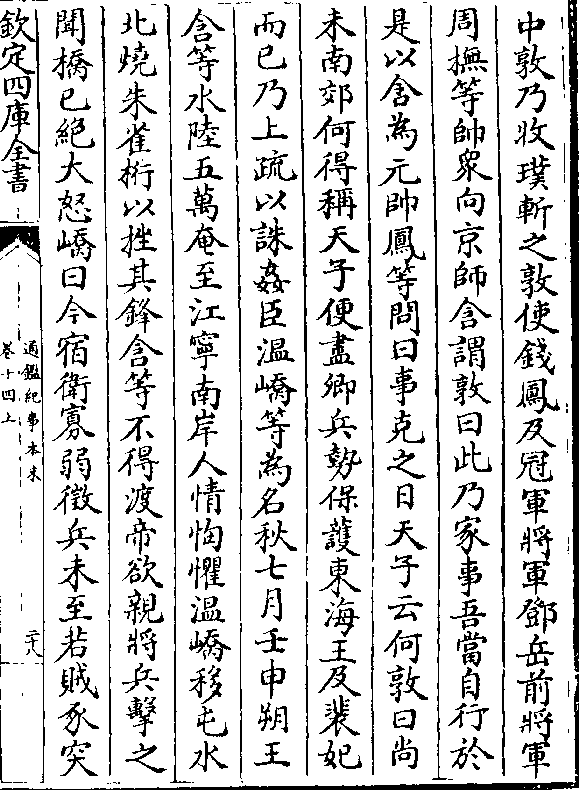 中敦乃收璞斬之敦使錢鳳及冠軍將軍鄧岳前將軍
周撫等帥衆向京師含謂敦曰此乃家事吾當自行於
是以含為元帥鳳等問曰事克之日天子云何敦曰尚
未南郊何得稱天子便盡卿兵勢保護東海王及裴妃
而已乃上疏以誅姦臣溫嶠等為名秋七月壬申朔王
含等水陸五萬奄至江寧南岸人情恟懼溫嶠移屯水
北燒朱雀桁以挫其鋒含等不得渡帝欲親將兵擊之
聞橋已絕大怒嶠曰今宿衛寡弱徵兵未至若賊豕突
欽定四庫全書
通鑑紀事本末
卷十四上
二十八